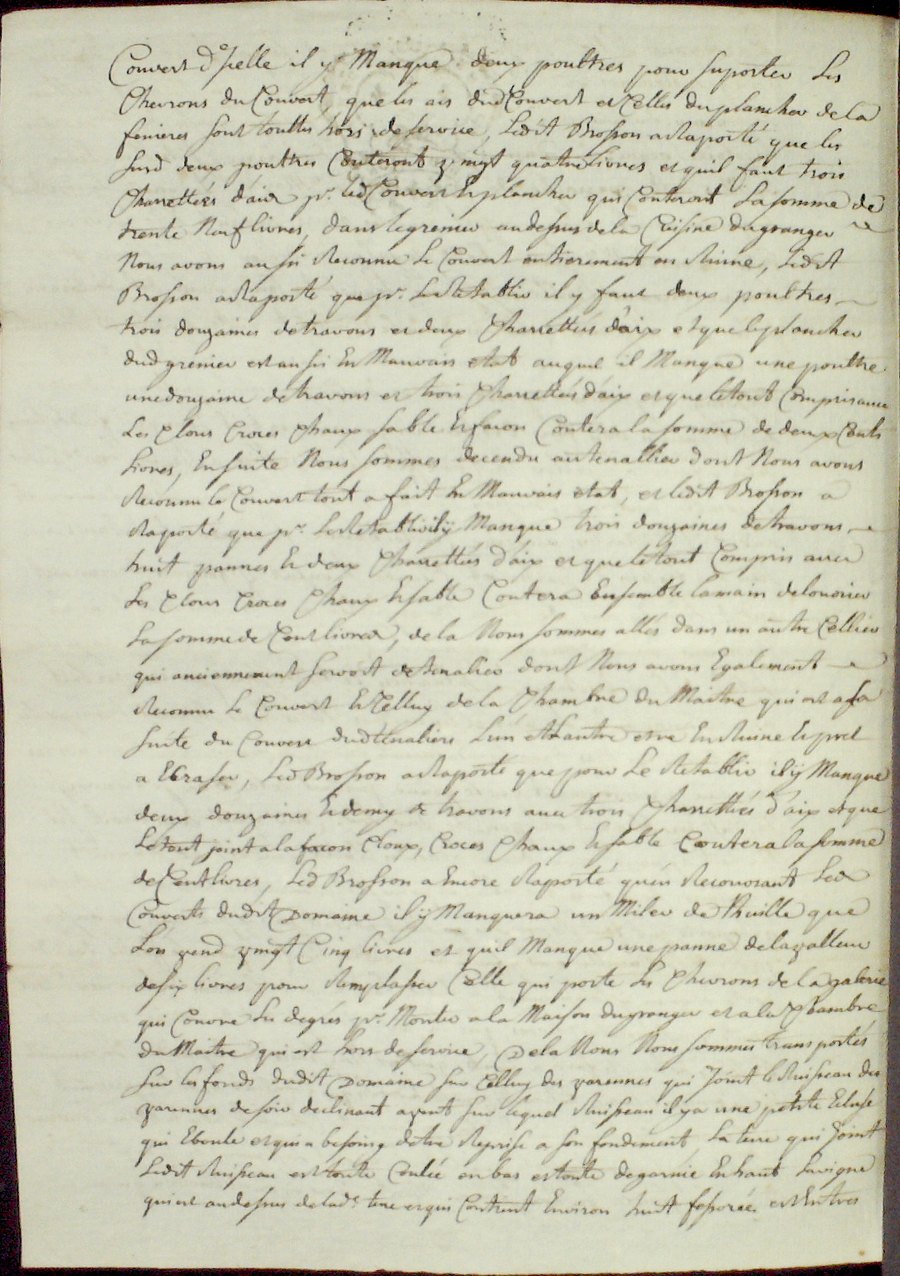 Couvert d'Icelle il y Manque deux poultres pour suporter Les
Chevrons du Couvert, que les ais dud Couvert et Celles du plancher de la
feniere sont touttes hors de service, Ledit Brosson a Raporté que les
susd deux poultres Couteront vingt quatre livres et quil faut trois
Charrettées d'aix pr. led Couvert & plancher qui Couteront La somme de
trente Neuf livres, dans le grenier au dessus de la Cuisine du granger
Nous avons aussi Reconnu Le Couvert entierement en Ruine, Ledit
Brosson a Raporté que pr. Le Retablir il y faut deux poultres
trois douzaines de travons et deux Charrettées d'aix et que le plancher
dud grenier est aussi En Mauvais etat auquel il Manque une poultre
une douzaine de travons et trois Charrettées d'aix et que le tout Compris avec
Les Clous Croces Chaux sable & facon Coutera la somme de deux Cents
Livres, Ensuitte Nous sommes decendu au tenallier dont Nous avons
Reconnu le Couvert tout a fait En Mauvais etat, et ledit Brosson a
Raporté que pr. Le Retablir il y Manque trois douzaines de travons,
huit pannes & deux Charrettées d'aix et que le tout Compris avec
Les Clous Croces Chaux & sable Coutera Ensemble la main de louvrier
La somme de Cent livres, de la Nous sommes allés dans un autre Cellier
qui anciennement servoit de tenalier dont Nous avons Egalement
Reconnu Le Couvert & Celluy de la Chambre du Maitre qui est a la
suite du Couvert dud tenaliere L'un et L'autre En Ruine & pret
a Ecraser, Led Brosson a Raporté que pour Le Retablir il y Manque
deux douzaines & demy de travons avec trois Charrettées d'aix et que
Le tout joint a la facon Cloux, Croces Chaux & sable Coutera la somme
de Cent livres, Led Brosson a Encore Raporté qu'en Recouvrant Les
Couverts dudit Domaine il y Manquera un Milier de Thuille que
L'on vend vingt Cinq livres et quil Manque une panne de la valleur
de six livres pour Remplasser Celle qui porte Les Chevrons de la galerie
qui Couvre Les degrés pr. Monter a la Maison du granger et a la Chambre
du Maitre qui est hors de service, De la Nous Nous sommes transportés
sur les fonds dudit Domaine sur Celluy des varennes qui Joint le Ruisseau des
varennes de soir declinant a vent sur lequel Ruisseau il y a une petite Ecluse
qui Eboule et qui a besoing d'etre Reprise a son fondement La terre qui Joint
Ledit Ruisseau est toute en bas et toute degarnie En haut La vigne
qui est au dessus de lad. terre et qui Contient Environ huit